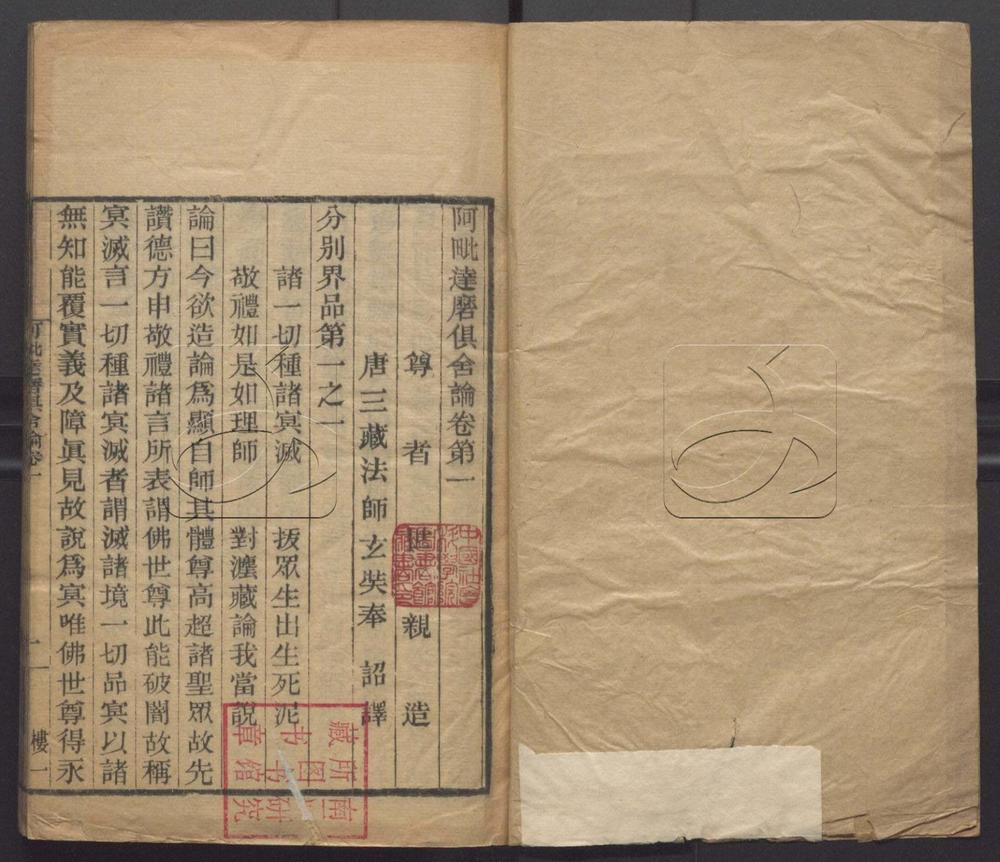 阿毗達磨俱舍論卷第一
尊者世親造
唐三藏法師玄奘奉 詔譯
分別界品第一之一
諸一切種諸冥滅 拔眾生出生死泥
敬禮如是如理師 對灋藏論我當說
論曰今欲造論爲顯自師其體尊高超諸聖眾故先
讚德方申敬禮諸言所表謂佛世尊此能破闇故稱
冥滅言一切種諸冥滅者謂滅諸境一切品冥以諸
無知能覆實義及障眞見故說爲冥唯佛世尊得永
阿毗達磨俱舍論卷一
一
樓一